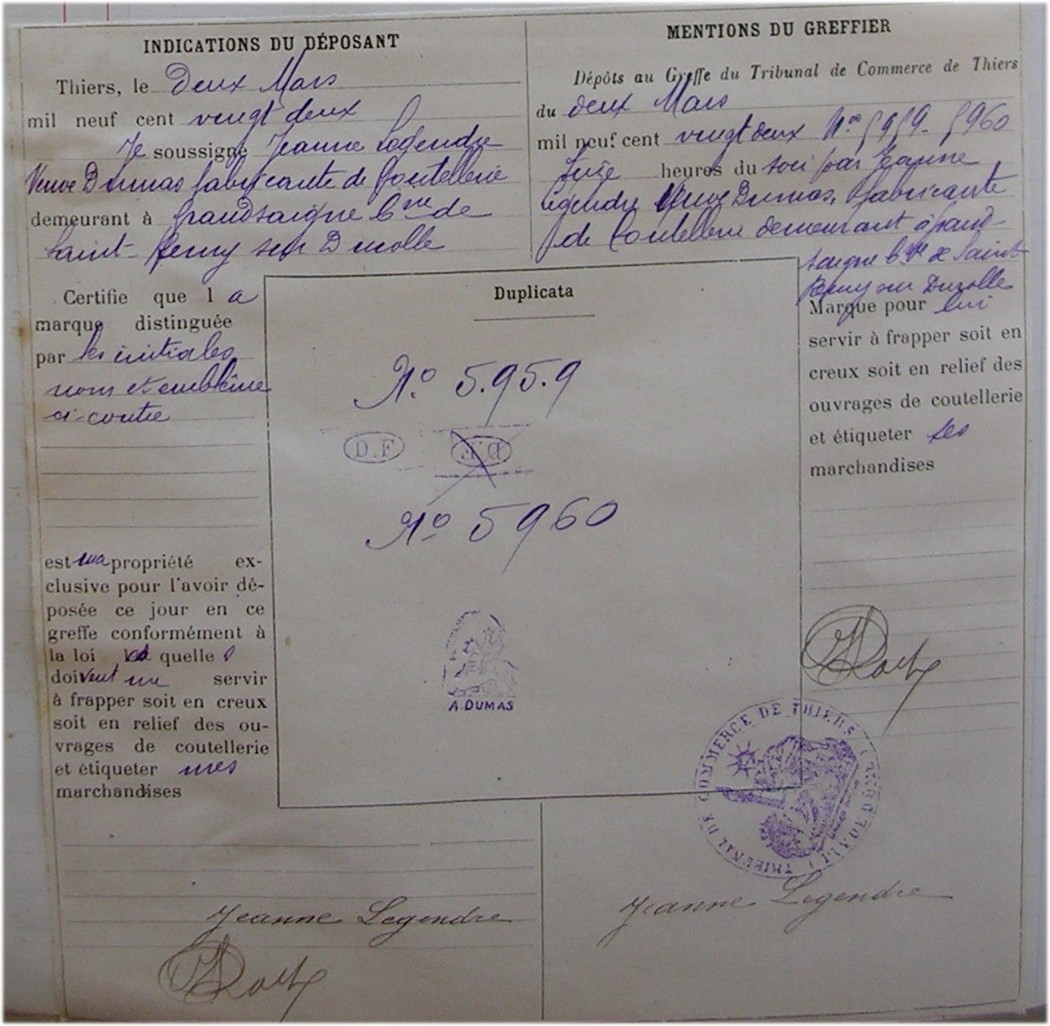 INDICATIONS DU DÉPOSANT
Thiers, le Deux Mars
mil neuf cent vingt deux
Je soussigné Jeanne Legendre
Veuve Dumas fabricante de Coutellerie
demeurant à Grandsaigne Cne de
Saint-Remy sur Durolle
Certifie que la
marque distinguée
par les initiales,
nom et emblème
ci-contre
est ma propriété ex-
clusive pour l'avoir dé-
posée ce jour en ce
greffe conformément à
la loi quelles
doivent me servir
à frapper soit en creux
soit en relief des ou-
vrages de coutellerie
et étiqueter mes
marchandises
Jeanne Legendre
Duplicata
No 5.959
D.F
No 5960
A.DUMAS
MENTIONS DU GREFFIER
Dépôts au Greffe du Tribunal de Commerce de Thiers
du deux Mars
mil neuf cent vingt deux Nos 5959-5960
heures du soir par Jeanne
Legendre Veuve Dumas, fabricante
de Coutellerie demeurant à Grand-
saigne Cne de Saint
Remy sur Durolle
Marque pour lui
servir à frapper soit en
creux soit en relief des
ouvrages de coutellerie
et étiqueter ses
marchandises
TRIBUNAL DE COMMERCE DE THIERS (PUY-DE-DÔME)
Jeanne Legendre